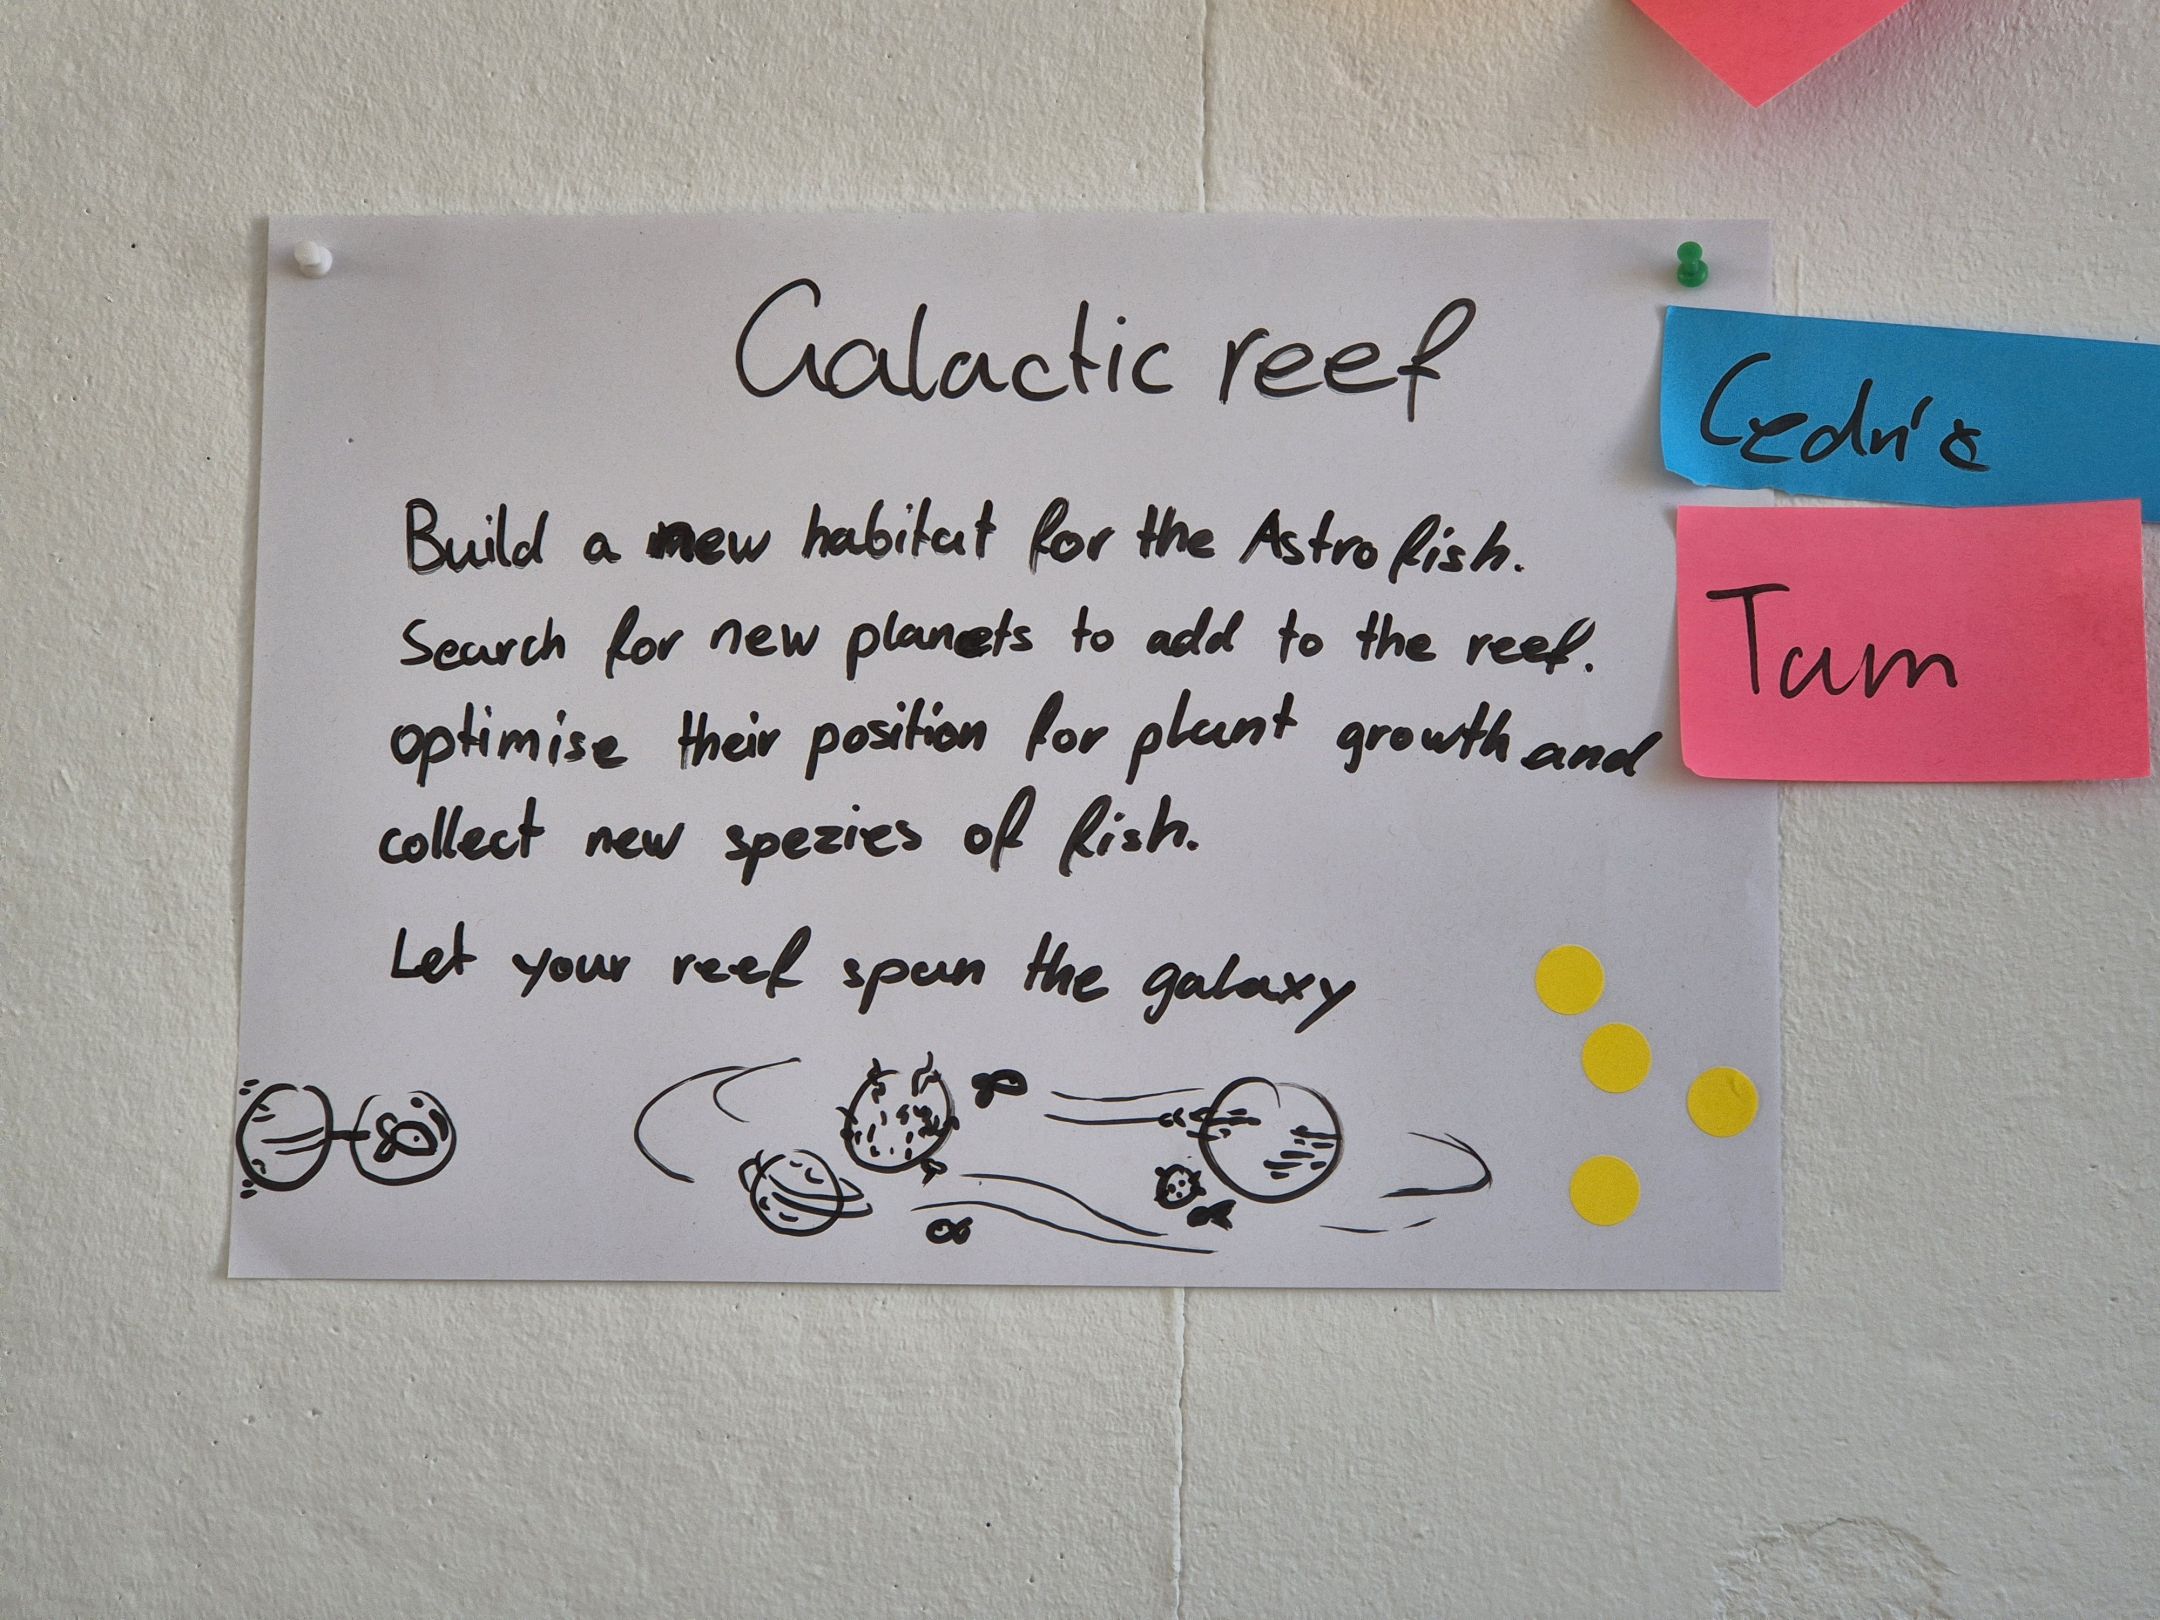 Galactic reef
Cedric
Build a new habitat for the Astrofish.
Tam
Search for new planets to add to the reef.
optimise their position for plant growth and
collect new spezies of fish.
Let your reef span the galaxy